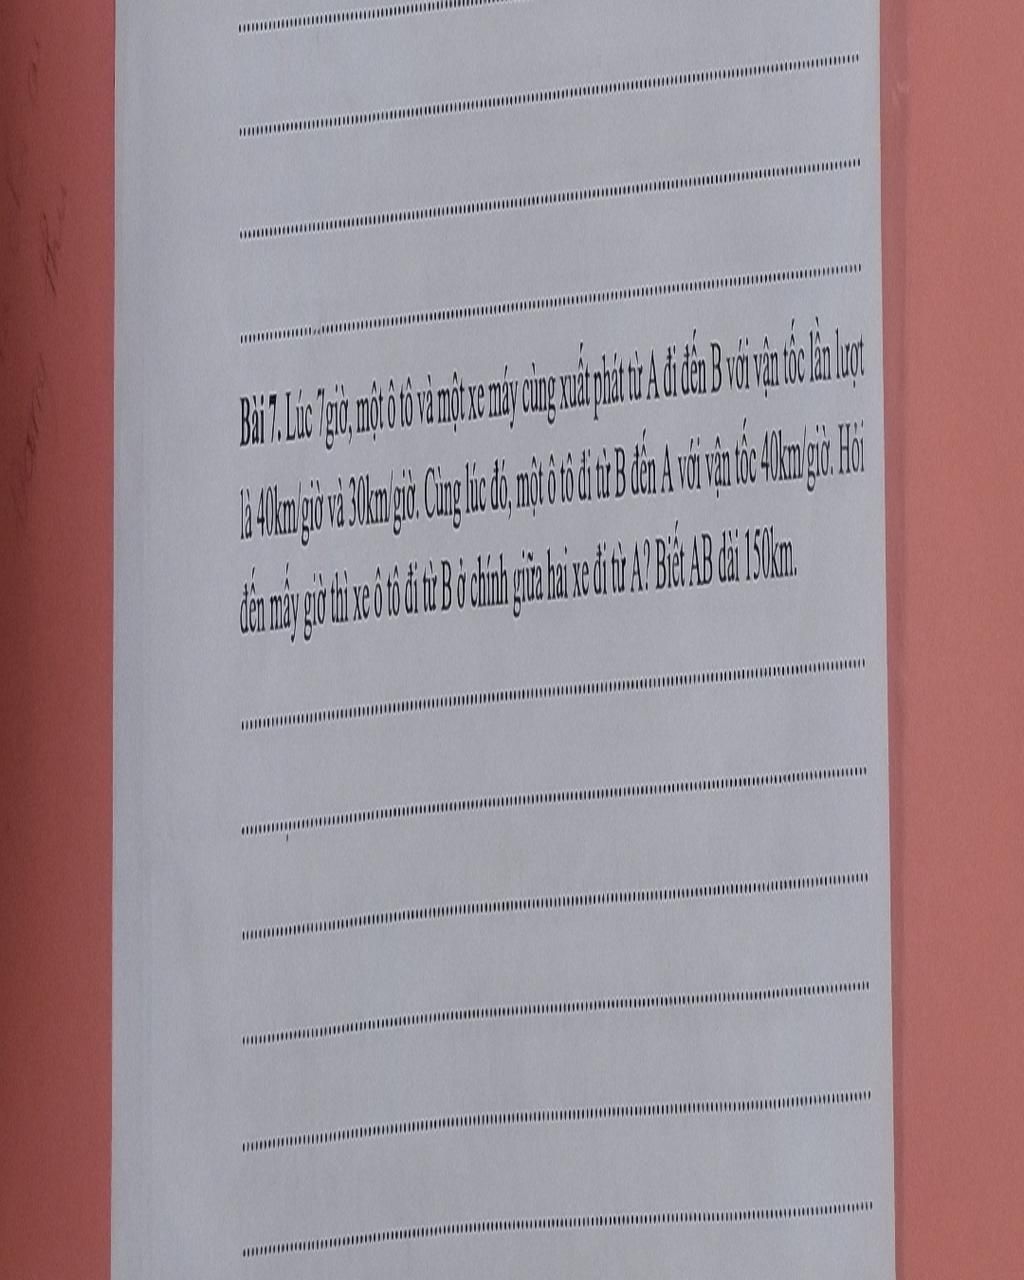 Bài 7. Lúc 7giờ, một ô tô và một xe máy cùng xuất phát từ A đi đến B với vận tốc lần lượt
là 40km/giờ và 30km/giờ. Cùng lúc đó, một ô tô đi từ B đến A với vận tốc 40km/giờ. Hỏi
đến mấy giờ thì xe ô tô đi từ B ở chính giữa hai xe đi từ A? Biết AB dài 150km.